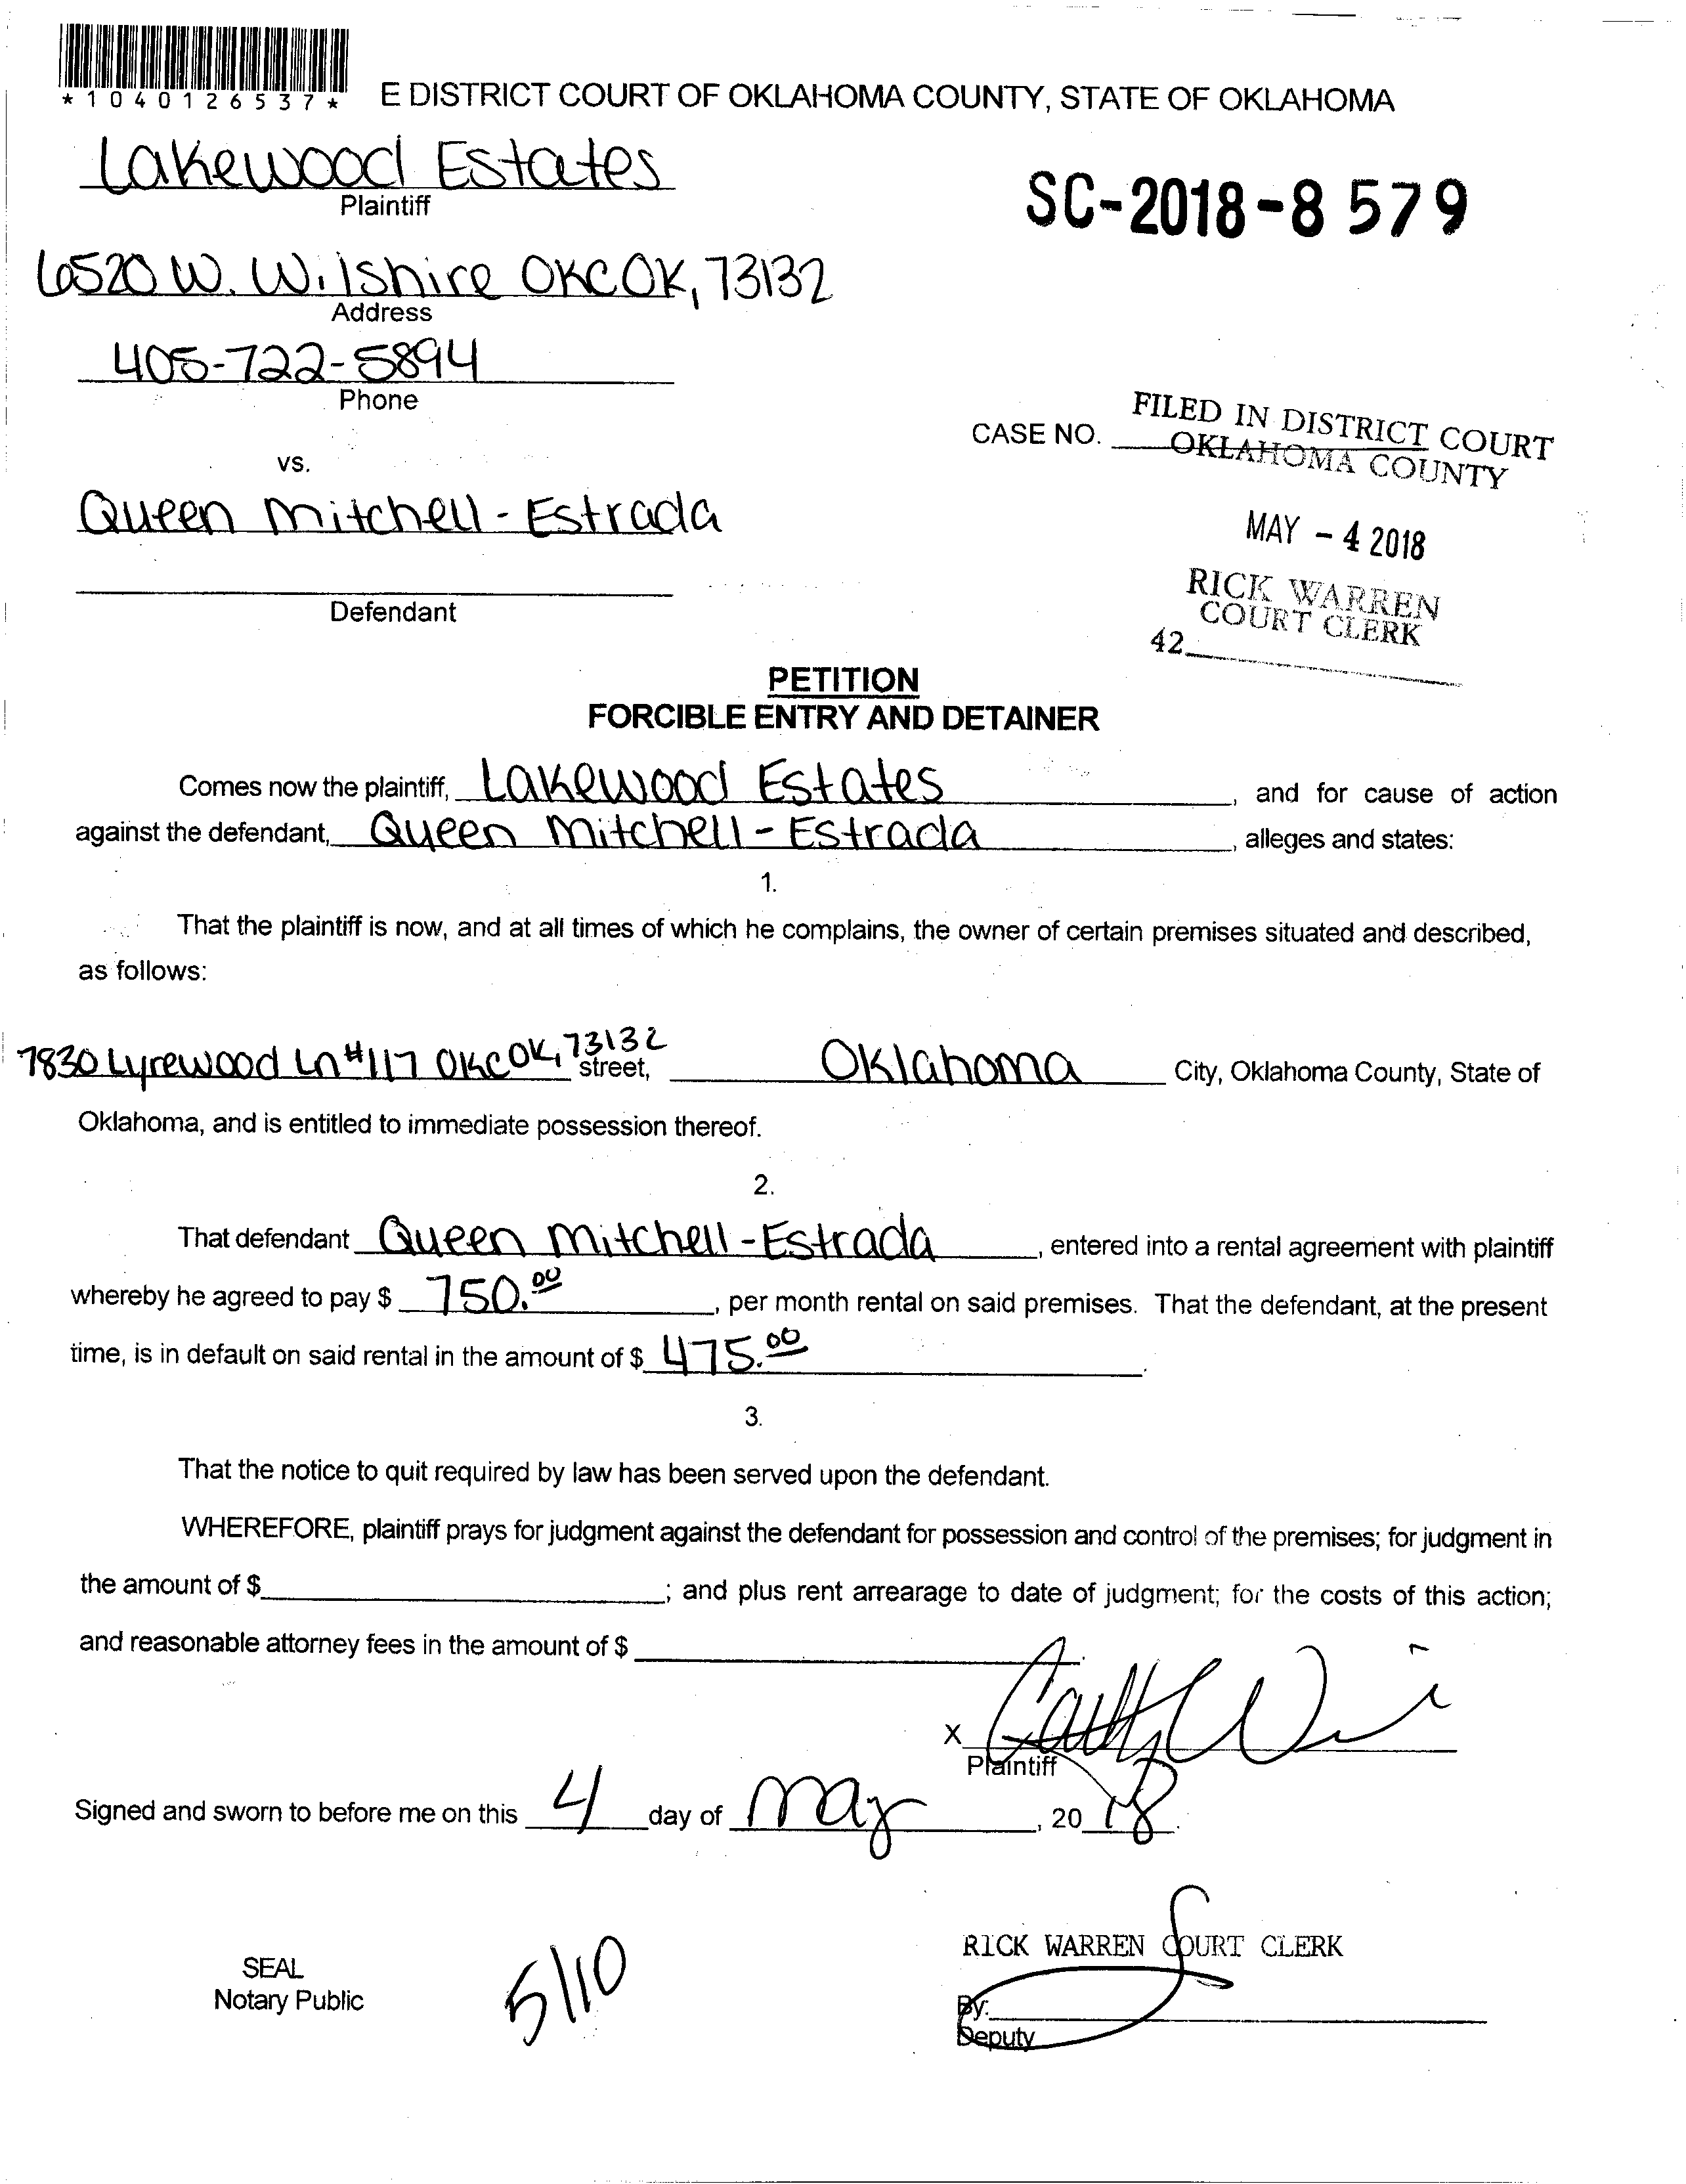 *1040126537*
E DISTRICT COURT OF OKLAHOMA COUNTY, STATE OF OKLAHOMA
Lakewood Estates
Plaintiff
SC-2018-8579
6520 W. Wilshire OKC OK, 73132
Address
405-722-5894
Phone
CASE NO.
FILED IN DISTRICT COURT
OKLAHOMA COUNTY
vs.
Queen Mitchell-Estrada
MAY -4 2018
Defendant
RICK WARREN
COURT CLERK
42
PETITION
FORCIBLE ENTRY AND DETAINER
Comes now the plaintiff, Lakewood Estates, and for cause of action
against the defendant, Queen Mitchell-Estrada, alleges and states:
1.
That the plaintiff is now, and at all times of which he complains, the owner of certain premises situated and described,
as follows:
7830 Lyrewood Ln #117 OKC OK, 73132 street, Oklahoma City, Oklahoma County, State of
Oklahoma, and is entitled to immediate possession thereof.
2.
That defendant Queen Mitchell-Estrada, entered into a rental agreement with plaintiff
whereby he agreed to pay $ 750.00, per month rental on said premises. That the defendant, at the present
time, is in default on said rental in the amount of $ 475.00.
3.
That the notice to quit required by law has been served upon the defendant.
WHEREFORE, plaintiff prays for judgment against the defendant for possession and control of the premises; for judgment in
the amount of $ ; and plus rent arrearage to date of judgment; for the costs of this action;
and reasonable attorney fees in the amount of $ .
X
Plaintiff
Signed and sworn to before me on this 4 day of May, 20 18.
RICK WARREN COURT CLERK
SEAL
Notary Public
5/10
By:
Deputy